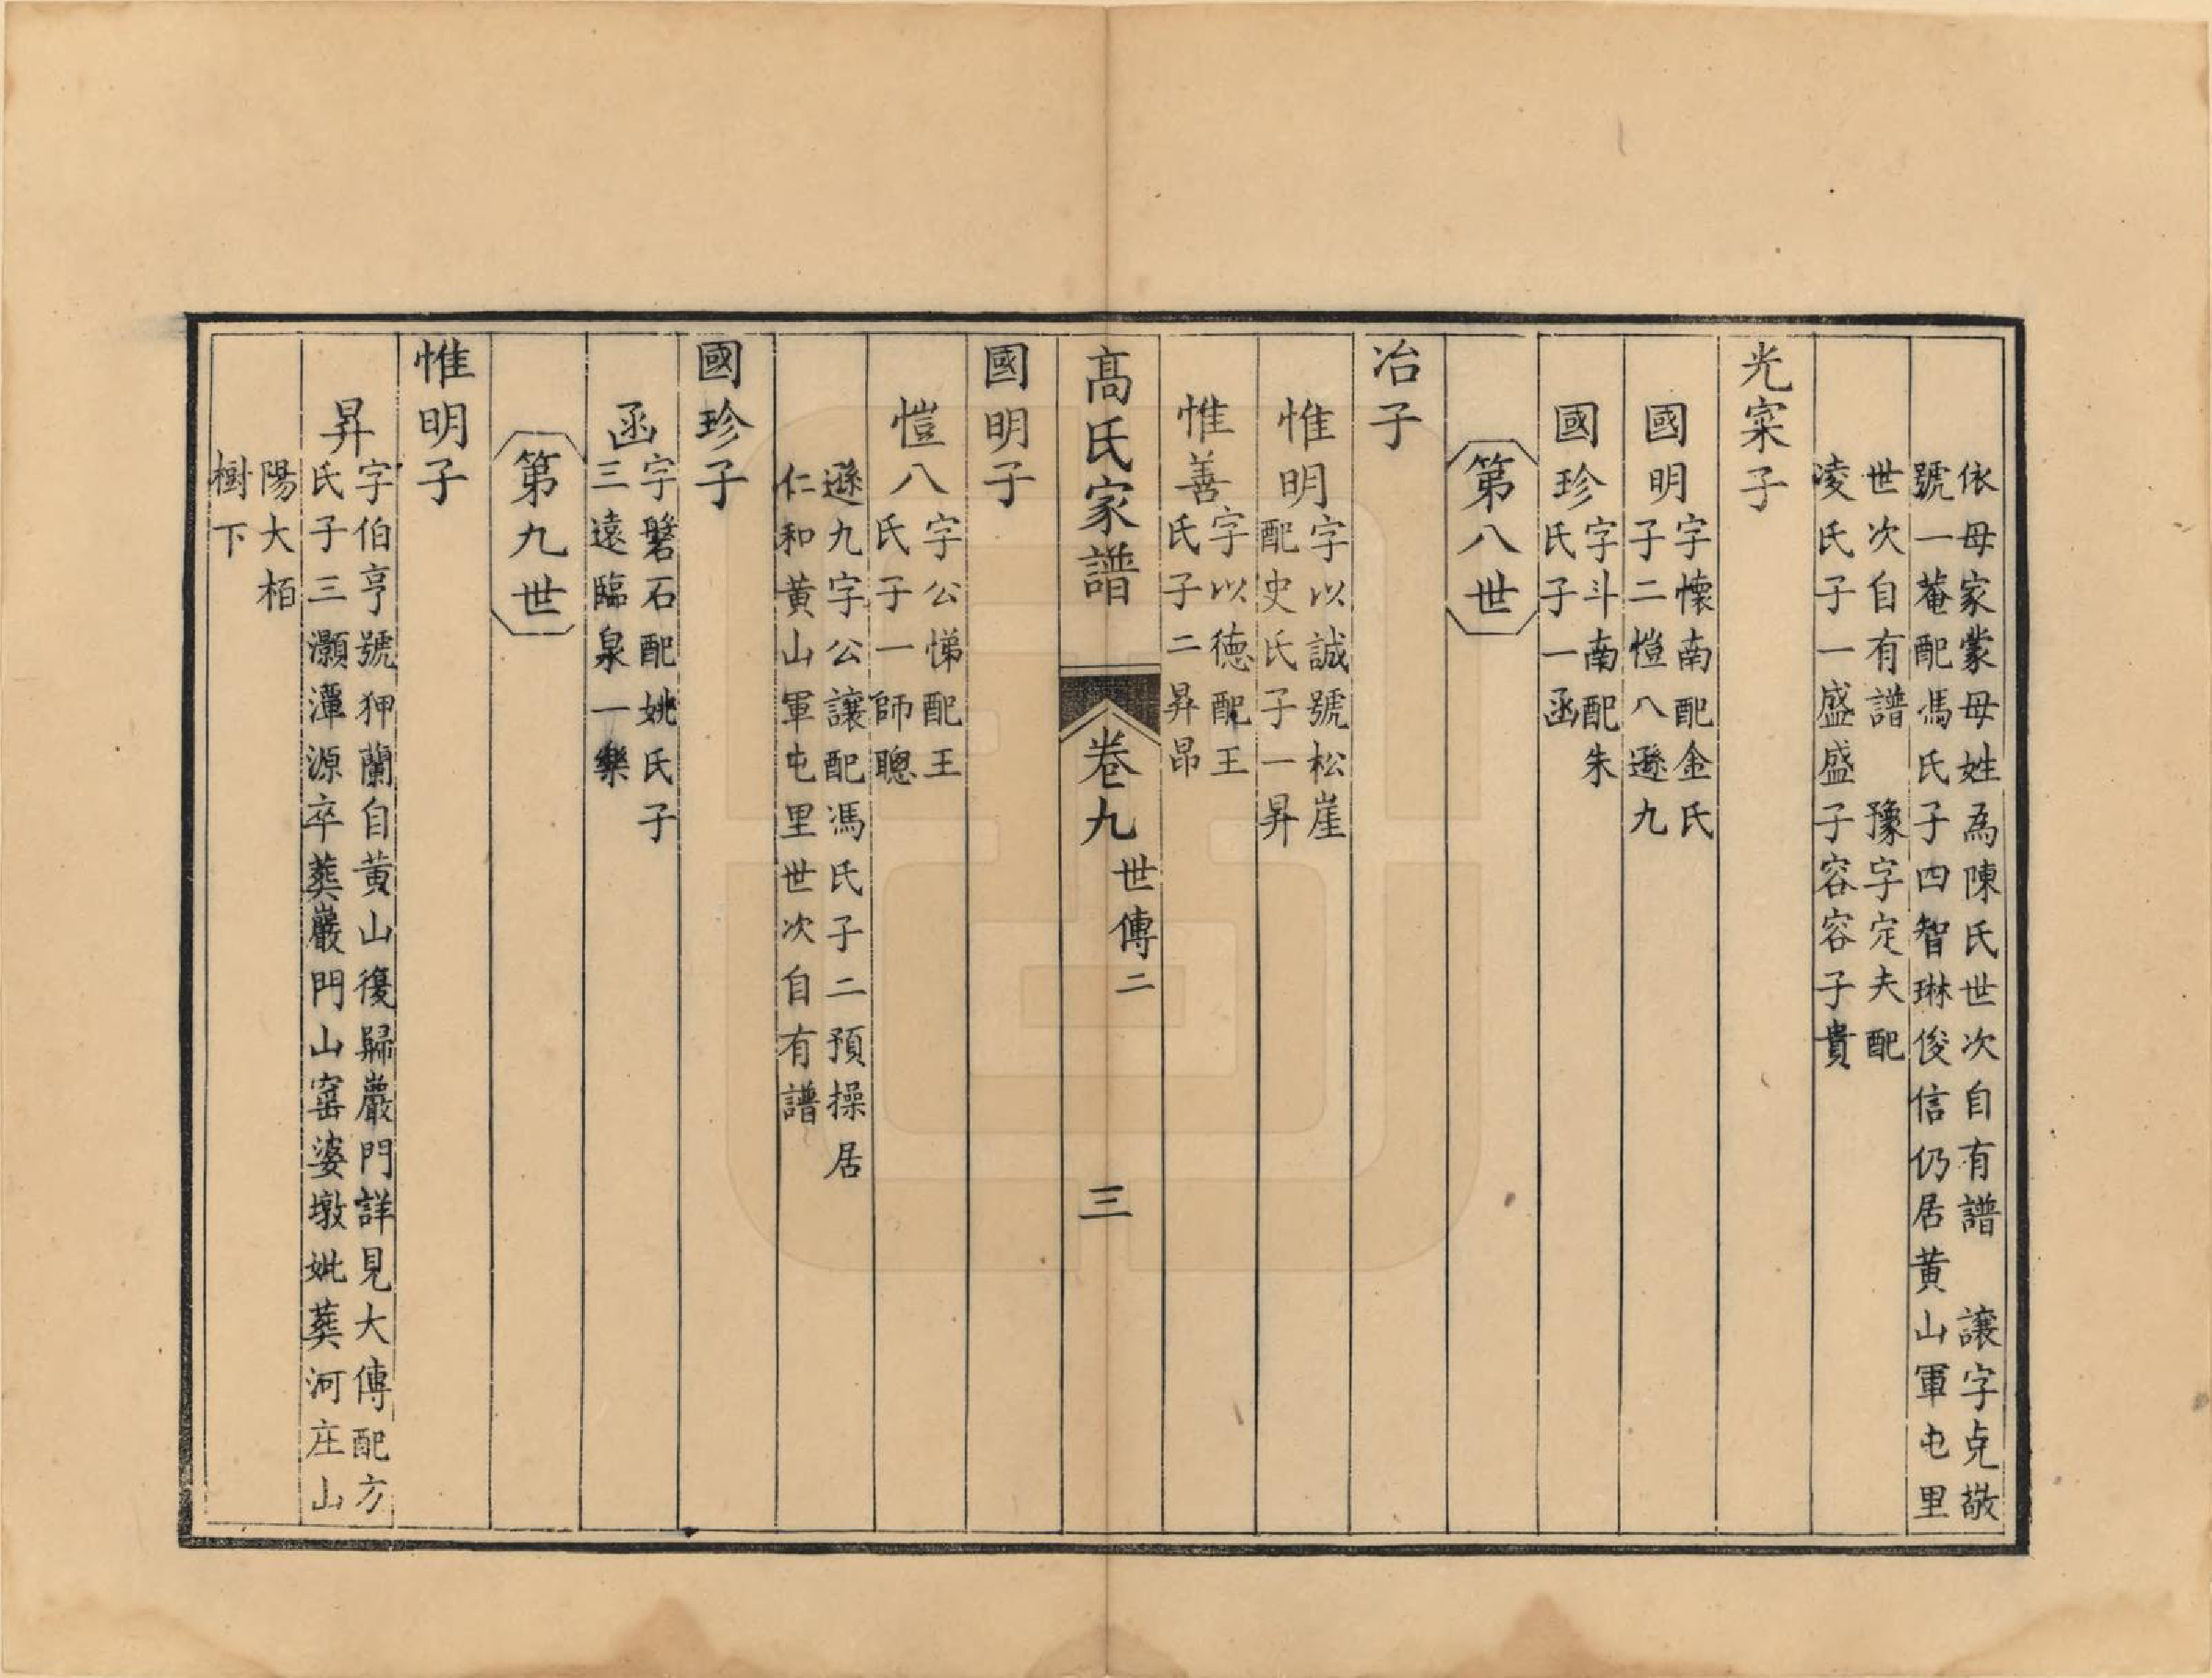 依母家蒙母姓為陳氏世次自有譜　讓字克敬
號一菴配馮氏子四智琳俊信仍居黄山軍屯里
世次自有譜　豫字定夫配
凌氏子一盛盛子容容子貴
光寀子
國明字懷南配金氏
子二愷八遜九
國珍字斗南配朱
氏子一函
第八世
冶子
惟明字以誠號松崖
配史氏子一昇
惟善字以德配王
氏子二昇昂
高氏家譜　卷九　世傳二　三
國明子
愷八字公悌配王
氏子一師聰
遜九字公讓配馮氏子二預操居
仁和黃山軍屯里世次自有譜
國珍子
函字磐石配姚氏子
三遠臨泉一樂
第九世
惟明子
昇字伯亨號狎蘭自黄山復歸巖門詳見大傳配方
氏子三灝潭源卒葬巖門山窑婆墩妣葬河庄山
陽大栢
樹下